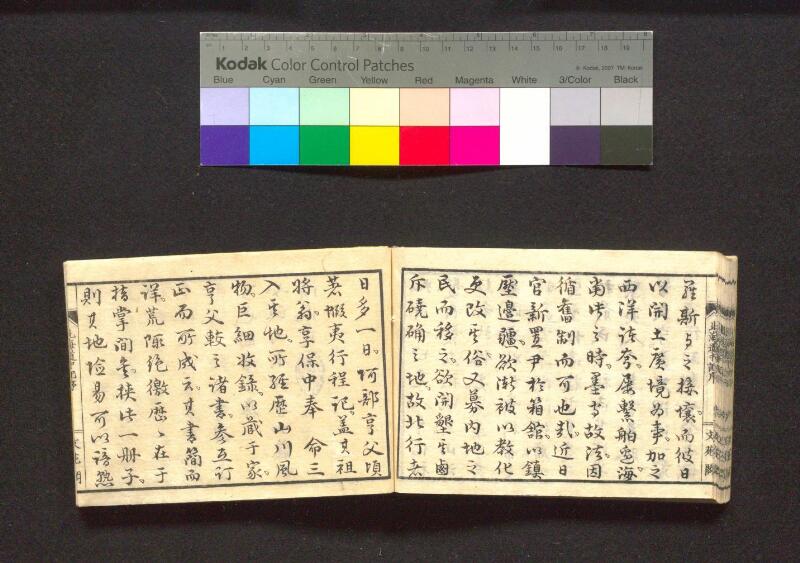 Kodak Color Control Patches
© Kodak, 2007 TM: Kodak
Blue Cyan Green Yellow Red Magenta White 3/Color Black
羅斯与之接壤而彼日
以開土廣境為事加之
西洋諸夸屢繫舶近海
當此之時墨守故法因
循舊制而可也哉近日
官新置尹於箱館以鎮
壓邊疆欲漸被以教化
更改其俗又募内地之
民而移之欲開墾其鹵
斥磽确之地故北行者
日多一日阿部亨父頃
著蝦夷行程記蓋其祖
將翁享保中奉 命三
入其地所經歷山川風
物巨細收錄以藏于家
亨父較之諸書參互訂
正而所成云其書簡而
詳荒陬絶徼歷歷在于
指掌間矣挾此一册子
則其地險易可以諳熟